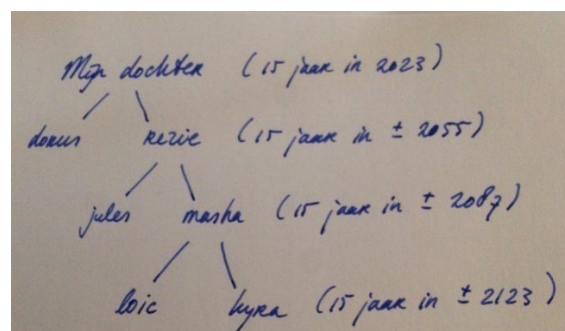 Mijn dochter (15 jaar in 2023)
dorus kezie (15 jaar in ± 2055)
jules masha (15 jaar in ± 2087)
loic kyra (15 jaar in ± 2123)